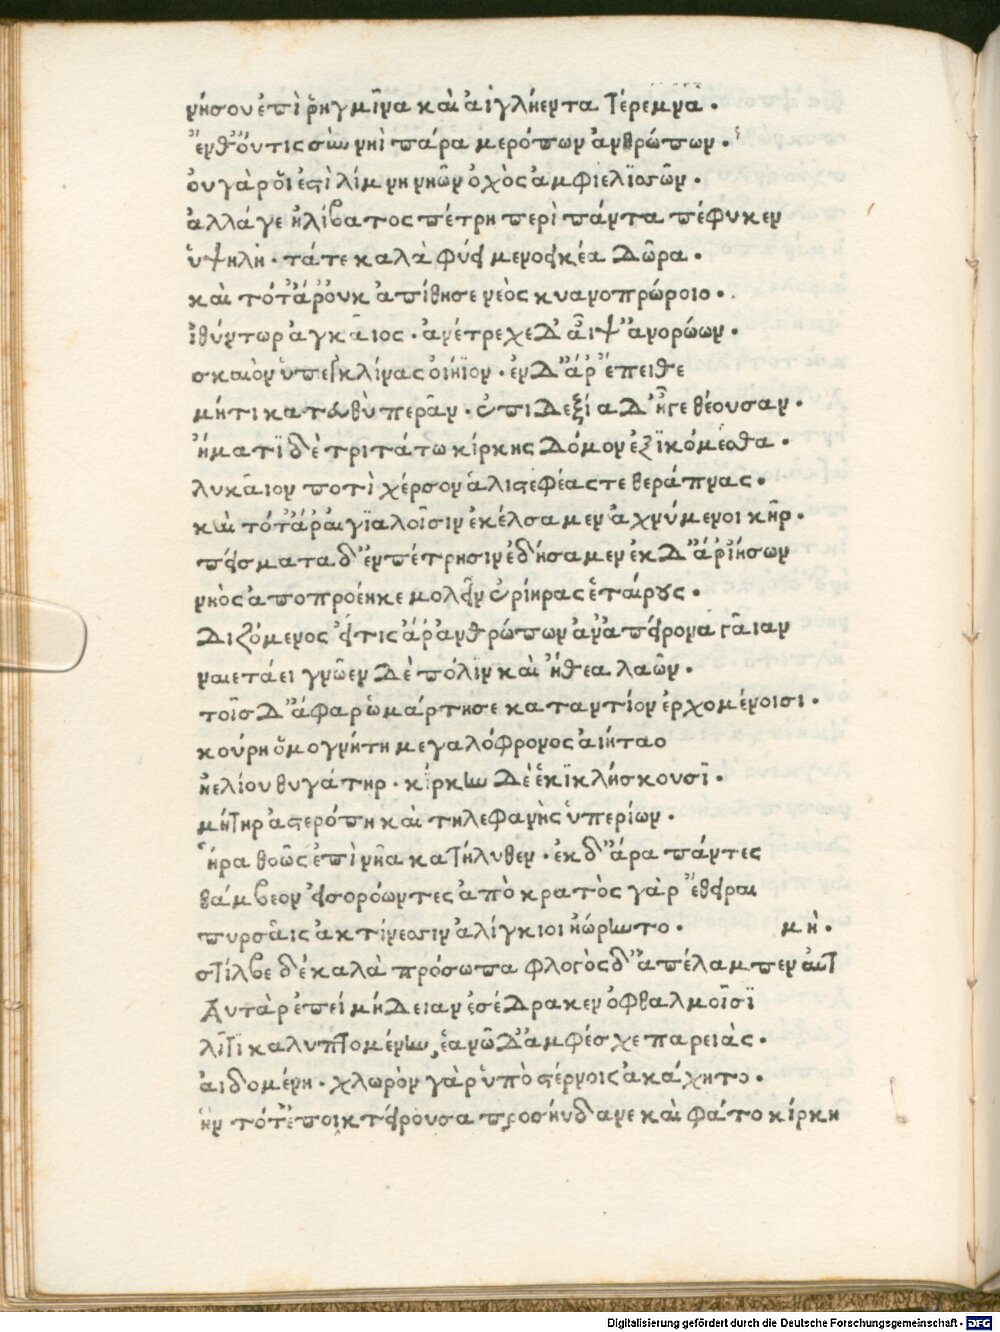 νήσου ἐπὶ ῥηγμῖνα καὶ αἰγλήεντα τέρεμνα.
ἔνθ' ὄυτις σὺν νηὶ πάρα μερόπων ἀνθρώπων.
ὀυ γὰρ ὅι ἐστὶ λίμνη νηῶν ὀχὸς ἀμφιελϊσσῶν.
ἀλλάγε ἠλίβατος πέτρη περὶ πάντα πέφυκεν
ὑψηλὴ. τάτε καλὰ φύει μενοεικέα δῶρα.
καὶ τότ' ἄρ' ὀυκ ἀπίθησε νεὸς κυανοπρώροιο.
ἰθύντωρ ἀγκᾶιος. ἀνέτρεχε δ' ἆιψ' ἀνορώων.
σκαιὸν ὑπεὶκ κλίνας ὀιήϊον. ἐν δ' ἄρ' ἔπειθε
μήτι κατιθὺ περᾶν. ἐπι δεξίαδ' ἦγε θέουσαν.
ἤματϊ δὲ τριτάτω κίρκης δόμον ἐξϊκόμεσθα.
λυκᾶιον ποτὶ χέρσον ἁλιστεφέας τε θεράπνας.
καὶ τότ' ἄρ' ἀιγϊαλοῖσιν ἐκέλσαμεν ἀχνύμενοι κῆρ.
πείσματα δ' ἐν πέτρησιν ἐδήσαμεν ἐκ δ' ἄρ' ἰήσων
νηὸς ἀποπροέηκε μολεῖν ἐρίηρας ἑτάιρους.
διζόμενος εἴτις ἄρ' ἀνθρώπων ἀν' ἀπείρονα γᾶιαν
ναιετάει γνῶεν δὲ πόλϊν καὶ ἤθεα λαῶν.
τοῖσ δ' ἄφαρ ὡμάρτησε καταντίον ἐρχομένοισι.
κούρη ὁμογνήτη μεγαλόφρονος ἀιήταο
ἠελίου θυγάτηρ. κίρκην δὲ ἑ κϊκλήσκουσϊ.
μήτηρ ἀστερόπη καὶ τηλεφανὴς ὑπερίων.
ἥ ρα θοῶς ἐπὶ νῆα κατήλυθεν. ἐκ δ' ἄρα πάντες
θάμβεον εἰσορόωντες ἀπὸ κρατὸς γὰρ ἔθειραι
πυρσᾶις ἀκτίνεσσιν ἀλίγκιοι ἠώρηντο. μὴ.
στίλβε δὲ καλὰ πρόσωπα φλογὸς δ' ἀπέλαμπεν ἀϋτ
Αυτὰρ ἐπεὶ μήδειαν ἐσέδρακεν ὀφθαλμοῖσϊ
λῖτϊ καλυπτομένην, ἑανῶ δ' ἀμφέσχε παρειὰς.
ἀιδομένη. χλωρὸν γὰρ ὑπὸ στέρνοις ἀκάχητο.
ἣν τότ' ἐποικτείρουσα προσήυδανε καὶ φάτο κίρκη